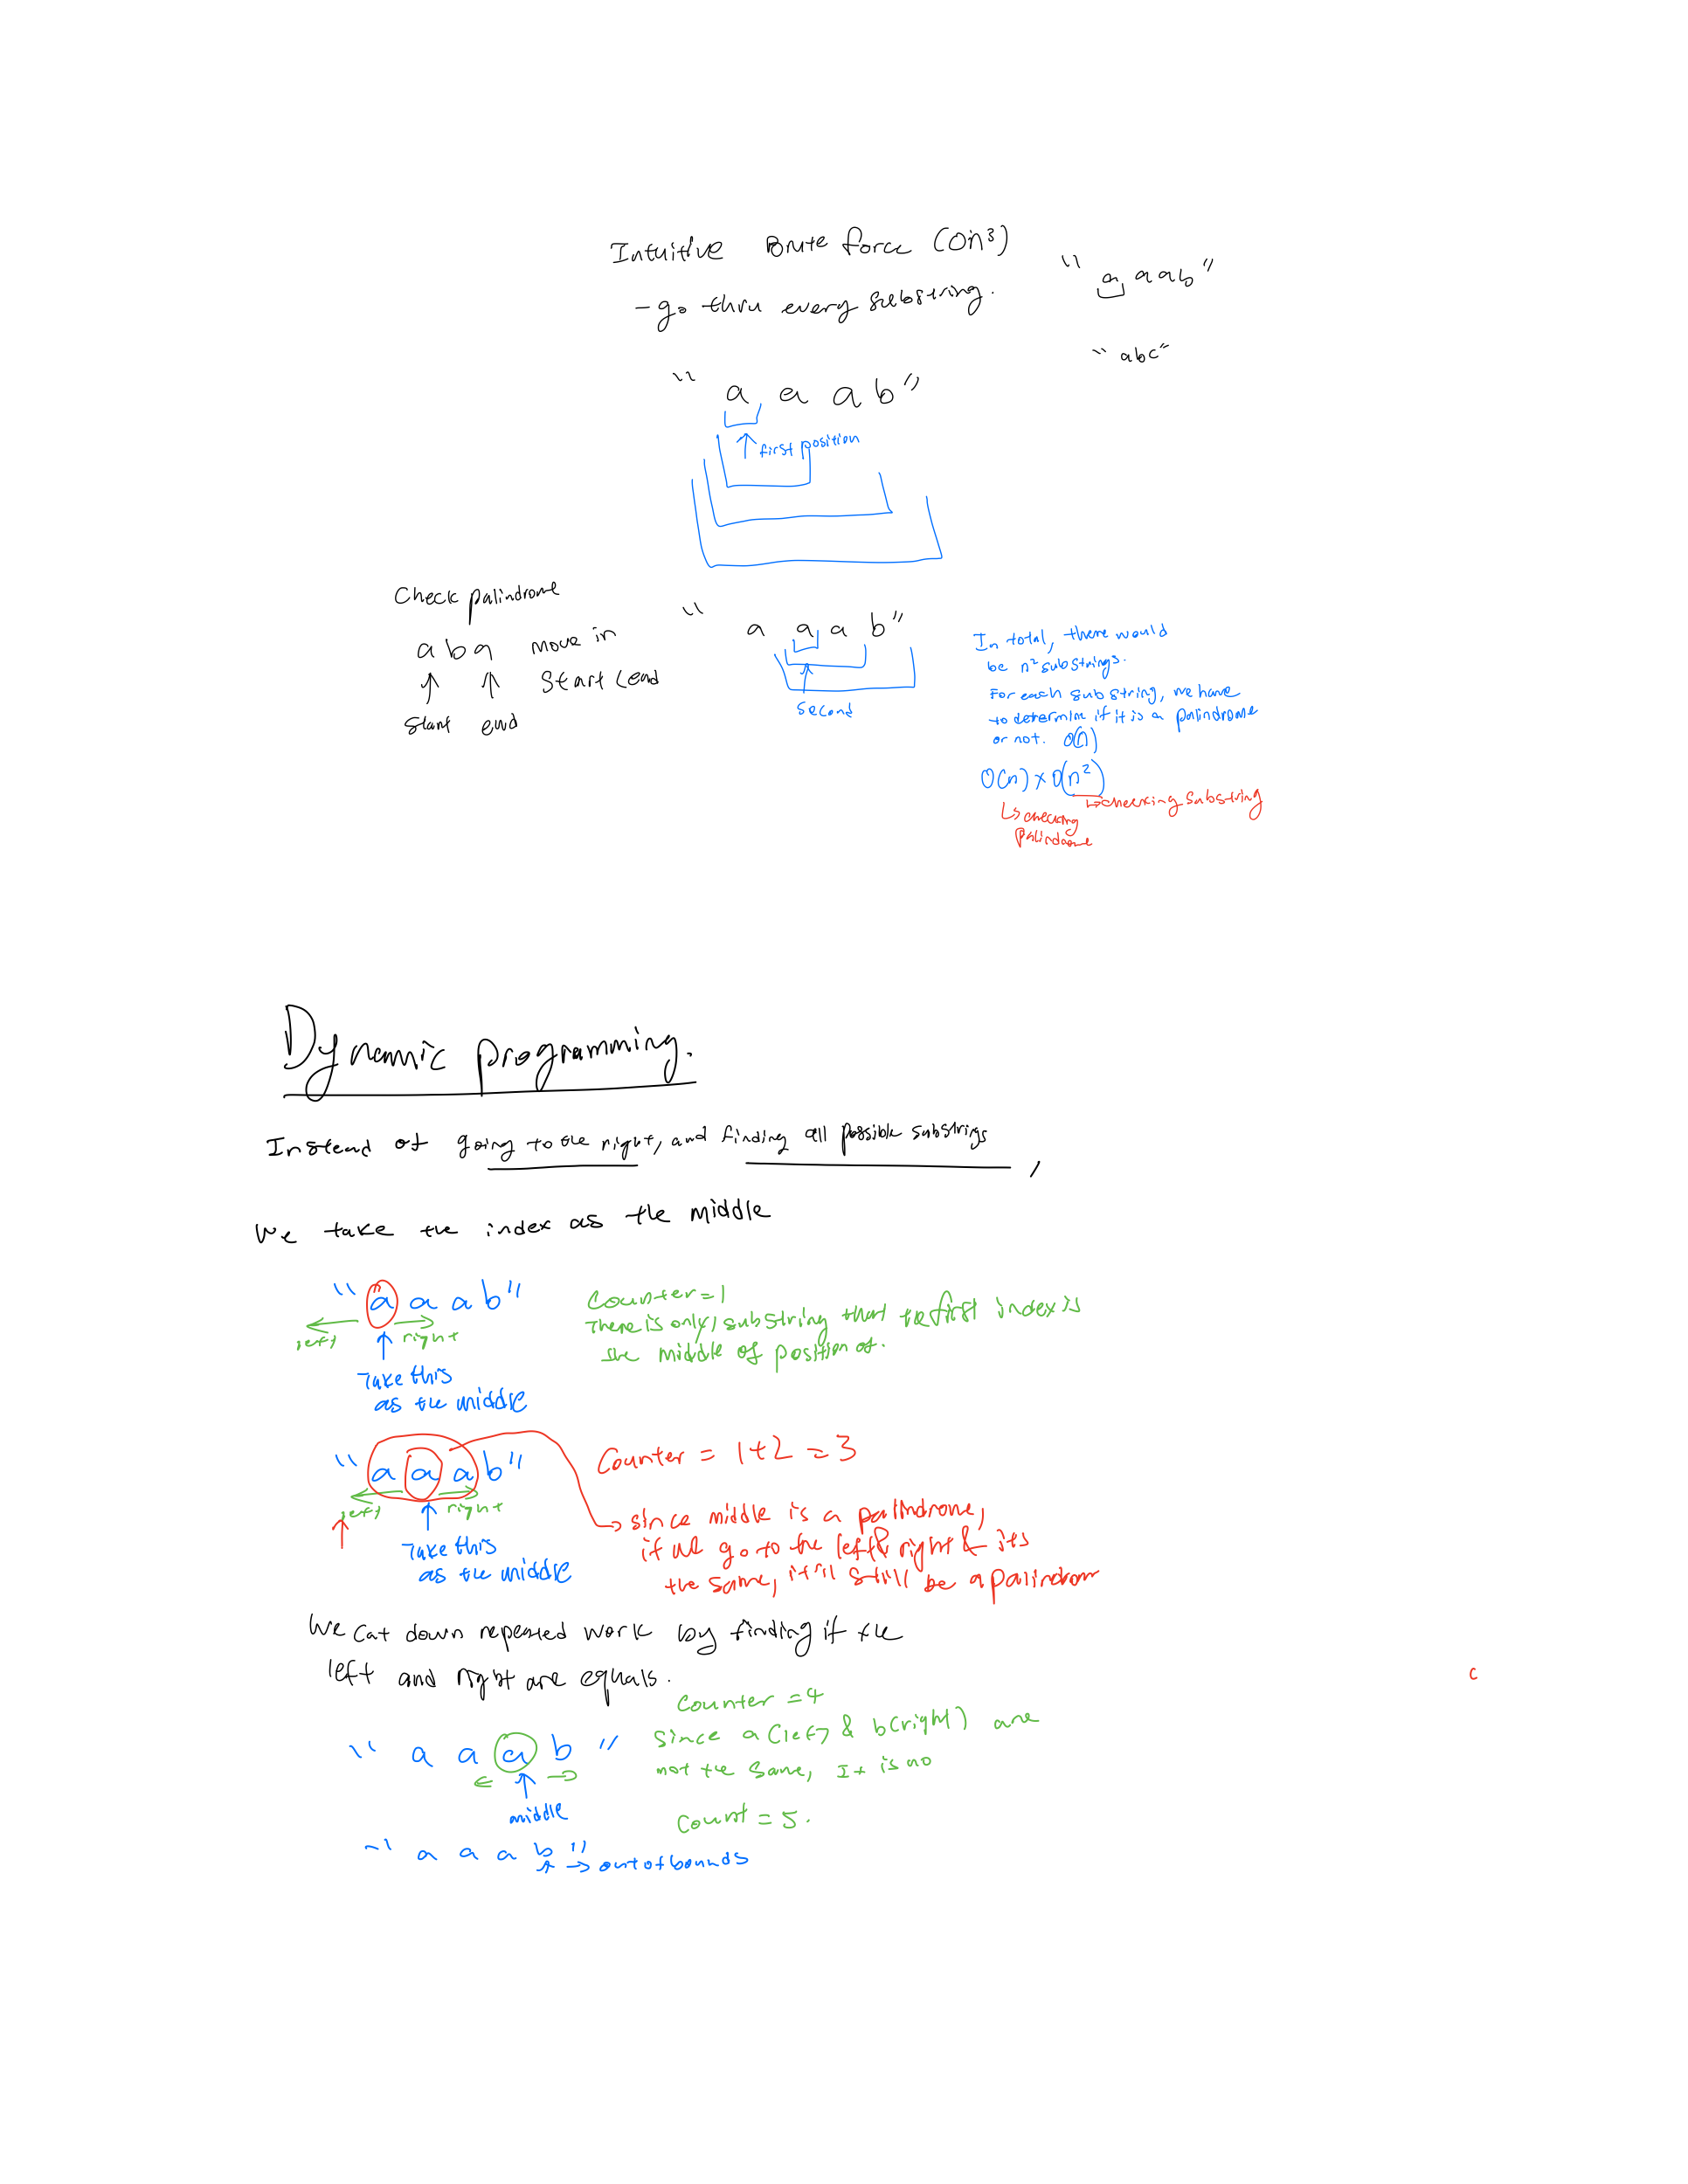 Intuitive Brute force (On³)
- go thru every substring.
" a a a b "
" abc "
" a a a b "
first position
Check palindrome
a b a move in
start end
start end
" a a a b "
second
In total, there would
be n² substrings.
For each substring, we have
to determine if it is a palindrome
or not. O(n)
O(n) x O(n²)
↳ checking substring
↳ checking
palindrome
Dynamic programming.
Instead of going to the right, and finding all possible substrings,
we take the index as the middle
" a a a b "
left right
Take this
as the middle
Counter = 1
There is only 1 substring that the first index is
the middle of position of.
" a a a b "
left right
Take this
as the middle
Counter = 1+2 = 3
→ since middle is a palindrome,
if we go to the left & right & its
the same, it'll still be a palindrom
We cut down repeated work by finding if the
left and right are equals.
" a a a b "
middle
Counter = 4
Since a (left) & b (right) are
not the same, It is no
Count = 5.
" a a a b "
→ out of bounds
c